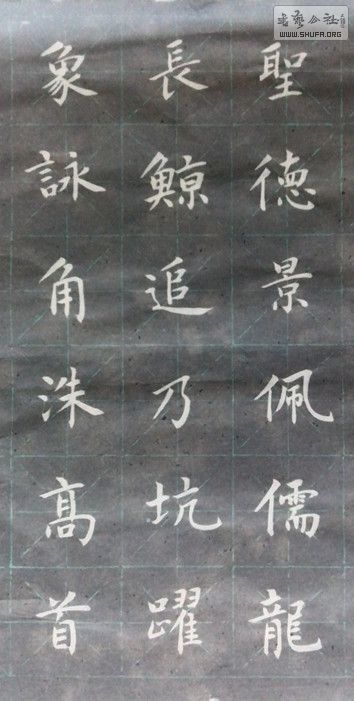 聖德景佩儒龍
長鯨追乃坑躍
象詠角洙高首
WWW.SHUFA.ORG